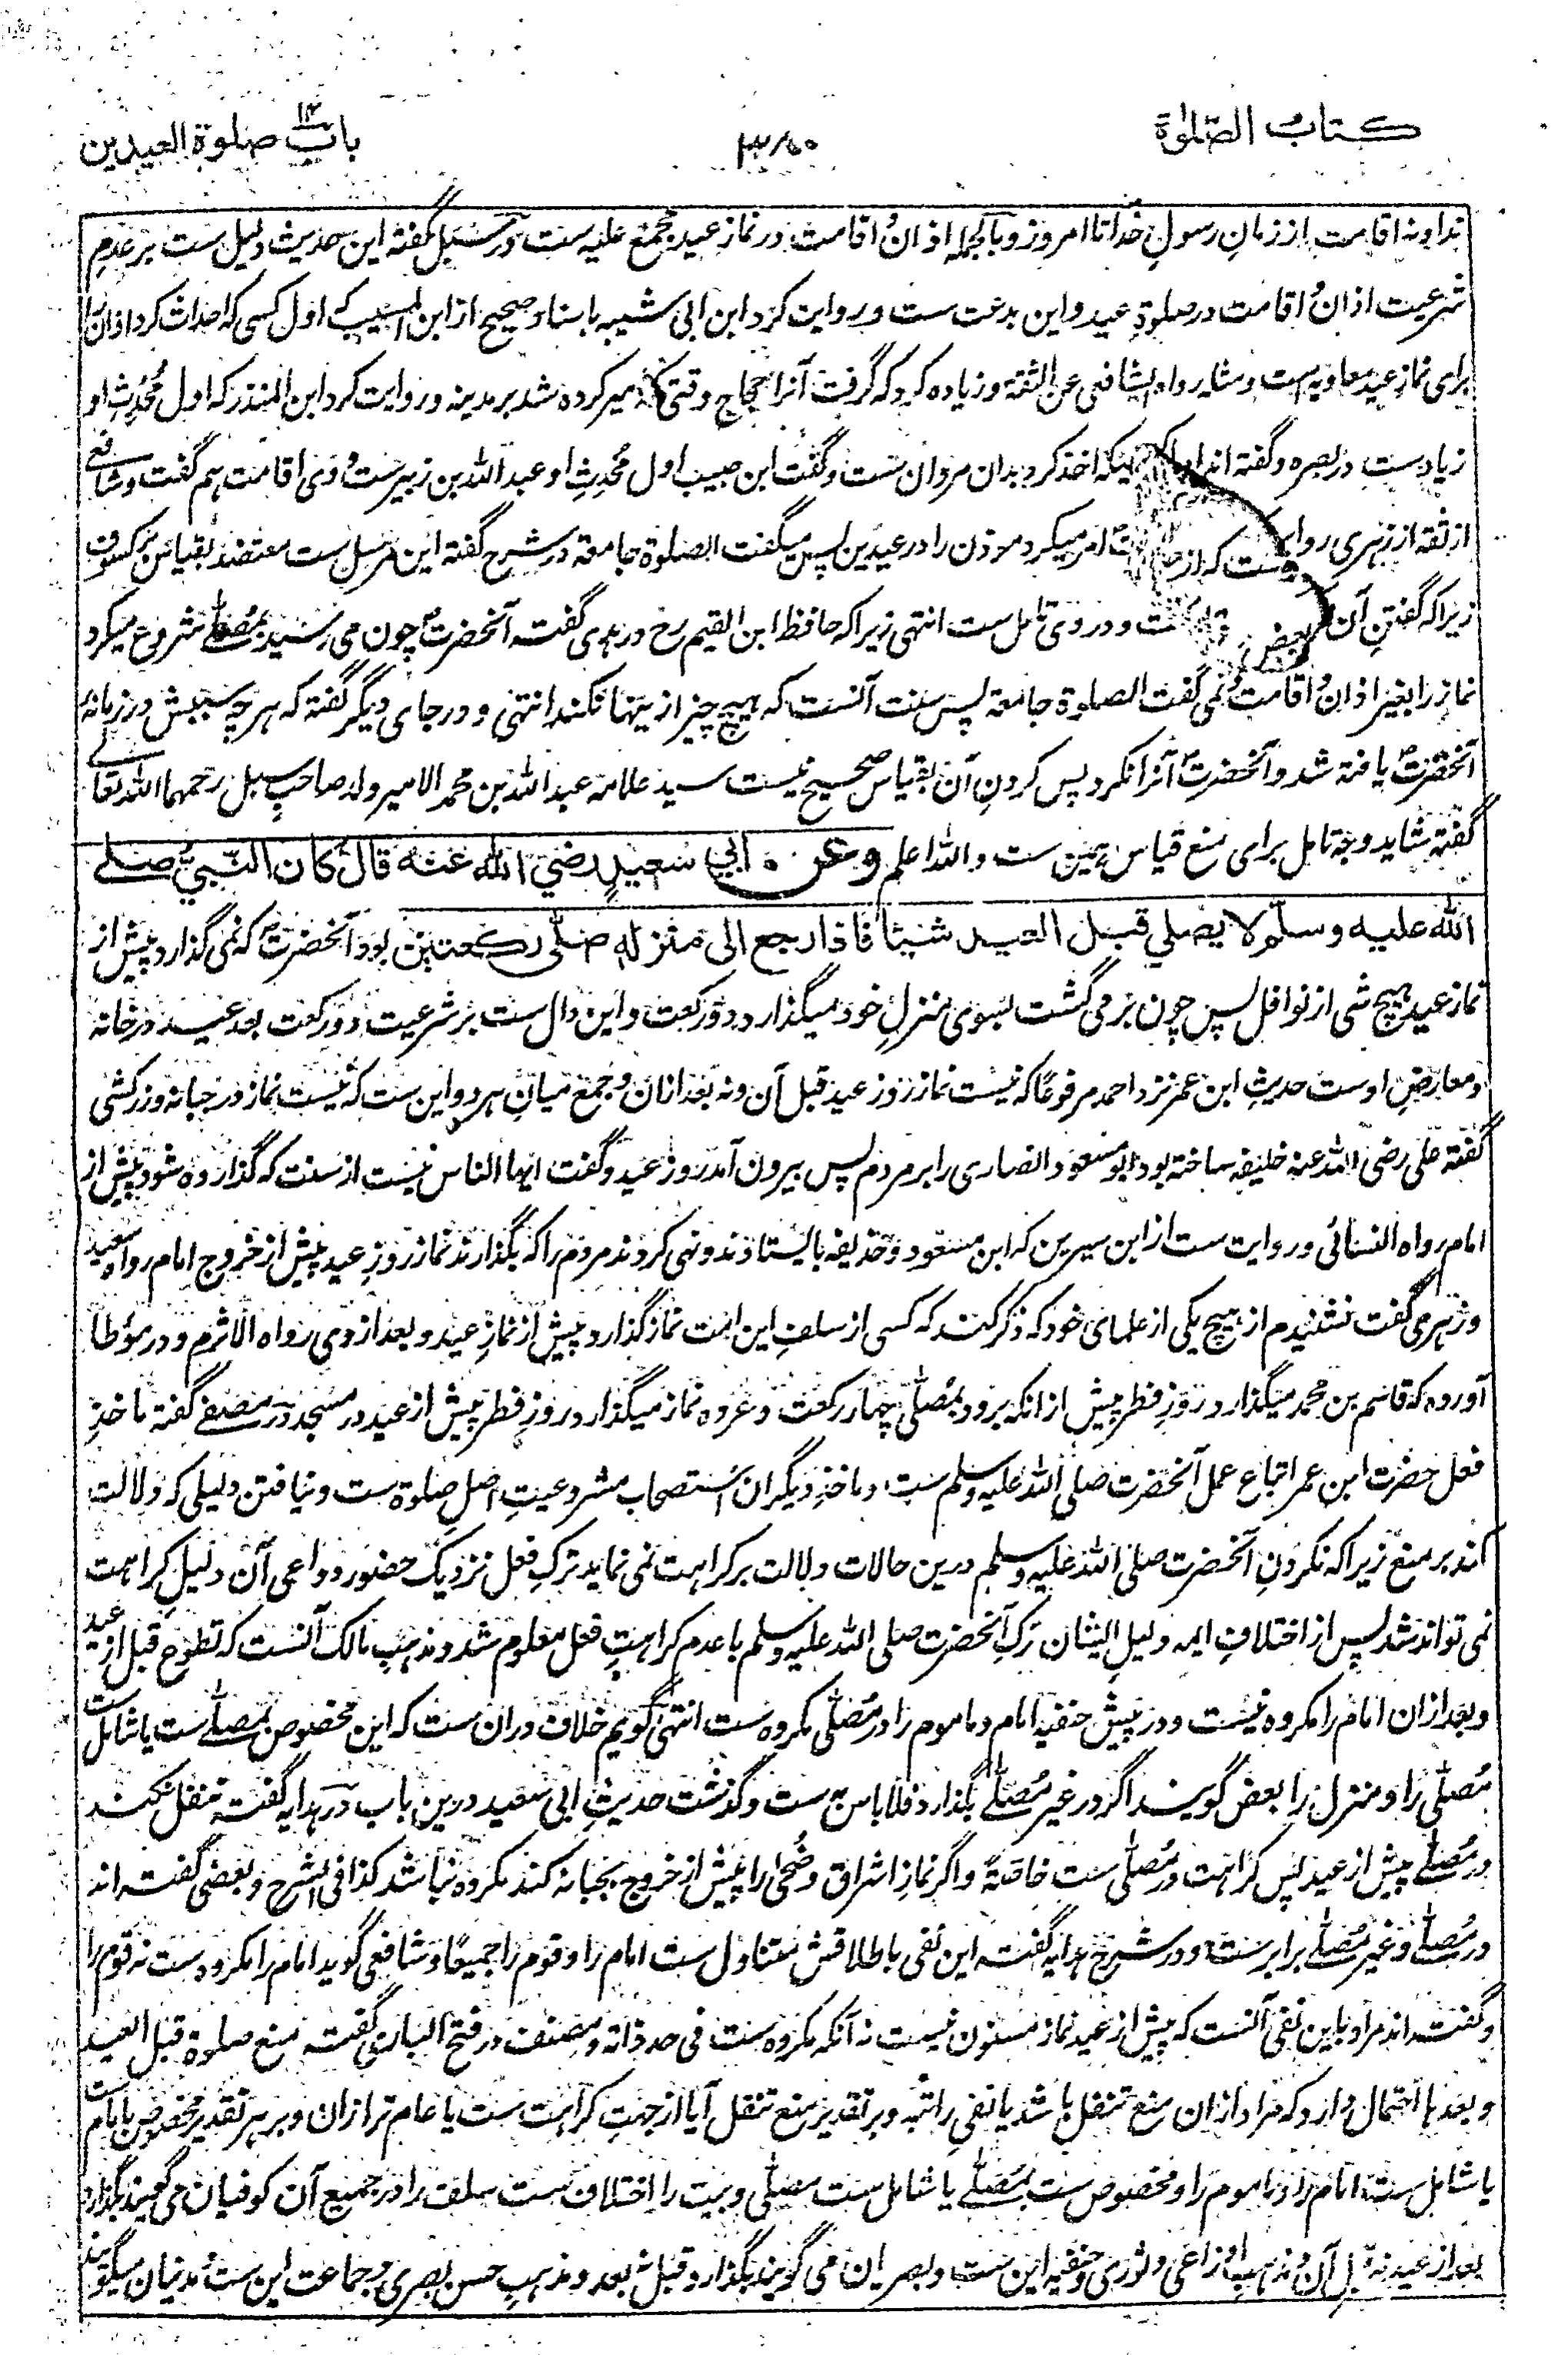 كتاب الصلوٰة
باب صلوة العیدین ۱۴
ندا و نه اقامت از زمانِ رسولِ خدا تا امروز و بالجمله اذان و اقامت در نماز عید مجمع علیه ست در سبل گفته این حدیث دلیل ست بر عدمِ
شرعیت اذان و اقامت در صلوةِ عید و این بدعت ست و روایت کرد ابن ابی شیبه باسناد صحیح از ابن المسیب که اول کسی که احداث کرد اذان را
برای نمازِ عید معاویه است و مثله رواه الشافعی عن الثقة و زیاده کرد که گرفت آنرا حجاج وقتی که امیر کرده شد بر مدینه و روایت کرد ابن المنذر که اول مُحدِثِ او
زیاد ست در بصره و گفته اند اخذ کرد بدان مروان ست و گفت ابن حبیب اول مُحدِثِ او عبد الله بن زبیر ست و وی اقامت هم گفت و شافعی
از ثقه از زهری روایت ست که آن امر میکرد موذن را در عیدین پس میگفت الصلوة جامعة در شرح گفته این مرسل ست معتضد بقیاس بر کسوف
زیرا که گفتنِ آن و در وی تامل ست انتهی زیرا که حافظ ابن القیم رح در هدی گفته آنحضرت چون می رسید بمُصلّے شروع میکرد
نماز را بغیر اذان و اقامت و نمی گفت الصلوة جامعة پس سنت آنست که هیچ چیز از ینها نکنند انتهی و در جای دیگر گفته که هر چه سببش در زمانهٔ
آنحضرت یافته شد و آنحضرت آنرا نکرد پس کردنِ آن بقیاس صحیح نیست سید علامه عبد الله بن محمد الامیر ولد صاحبِ سبل رحمهما الله تعالے
گفته شاید وجه تامل برای منع قیاس همین ست والله اعلم وعن ابي سعيدٍ رضي الله عنه قال كان النبيُّ صلے
الله عليه وسلّم لا يصلي قبل العيد شيئا فاذا رجع الى منزله صلّى ركعتين بود آنحضرت که نمی گذارد پیش از
نماز عید هیچ شی از نوافل پس چون بر می گشت بسوی منزلِ خود میگذارد دو رکعت و این دال ست بر شرعیت دو رکعت بعد عید در خانه
و معارضِ اوست حدیثِ ابن عمر نزد احمد مرفوعًا که نیست نماز روز عید قبل آن و نه بعد ازان و جمع میانِ هر دو این ست که نیست نماز در جبانه و زرکشی
گفته علی رضی الله عنه خلیفه ساخته بود ابو مسعود انصاری را بر مردم پس بیرون آمد روز عید و گفت ایها الناس نیست از سنت که گذارده شود پیش از
امام رواه النسائی و روایت ست از ابن سیرین که ابن مسعود و حذیفه بایستادند و نهی کردند مردم را که بگذارند نماز روزِ عید پیش از خروج امام رواه سعید
و زهری گفت نشنیدم از هیچ یکی از علمای خود که ذکر کند که کسی از سلفِ این امت نماز گذارد پیش از نمازِ عید و بعد از وی رواه الاثرم و در موُطا
آورده که قاسم بن محمد میگذارد روزِ فطر پیش از انکه برود بمُصلّی چهار رکعت و عروه نماز میگذارد روزِ فطر پیش از عید در مسجد در مصفے گفته ماخذِ
فعل حضرت ابن عمر اتباع عمل آنحضرت صلی الله علیه وسلم ست و ماخذِ دیگران استصحابِ مشروعیتِ اصلِ صلوة ست و نیافتن دلیلی که دلالت
کند بر منع زیرا که نکردنِ آنحضرت صلی الله علیه وسلم درین حالات دلالت بر کراهت نمی نماید ترکِ فعل نزدیک حضور دواعی آن دلیلِ کراهت
نمی تواند شد پس از اختلافِ ایمه دلیلِ ایشان ترکِ آنحضرت صلی الله علیه وسلم با عدم کراهتِ فعل معلوم شد و مذهبِ مالک آنست که تطوع قبل از عید
و بعد ازان امام را مکروه نیست و در پیش حنفیه امام و ماموم را در مُصلّی مکروه ست انتهی گویم خلاف دران ست که این مخصوص بمصلّے ست یا شامل ست
مُصلّی را و منزل را بعض گویند اگر در غیر مُصلّے بگذارد فلا باس به ست و گذشت حدیثِ ابی سعید درین باب در هدایه گفته متنفل نکند
در مُصلّے پیش از عید پس کراهت در مُصلّی ست خاصّةً و اگر نمازِ اشراق و ضُحیٰ را پیش از خروج بجبانه کند مکروه نباشد کذا فی الشرح و بعضی گفته اند
در مُصلّے و غیر مُصلّے برابر ست و در شرح هدایه گفته این نفی باطلاقش متناول ست امام را و قوم را جمیعًا و شافعی گوید امام را مکروه ست نه قوم را
و گفته اند مراد باین نفی آنست که پیش از عید نماز مسنون نیست نه آنکه مکروه ست فی حد ذاته و مصنف در فتح الباری گفته منع صلوة قبل العید
و بعدها احتمال دارد که مراد ازان منع تنفل باشد یا نفیِ راتبه و بر تقدیر منع تنفل آیا از جهتِ کراهت ست یا عام تر ازان و بر هر تقدیر مخصوص بامام ست
یا شامل ست امام را و ماموم را و مخصوص ست بمُصلّے یا شامل ست مصلّی و بیت را اختلاف ست سلف را در جمیع آن کوفیان می گویند بگذارد
بعد از عید نه قبلِ آن و مذهبِ اوزاعی و ثوری و حنفیه این ست و بصریان می گویند بگذارد قبل نه بعد و مذهبِ حسن بصری و جماعت این ست و مدنیان میگویند